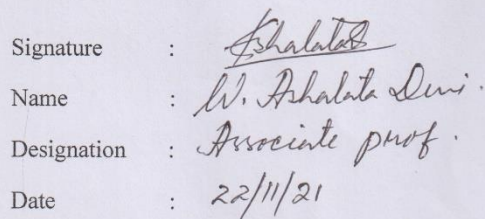 Signature : Ashalata
Name : W. Ashalata Devi.
Designation : Associate prof.
Date : 22/11/21